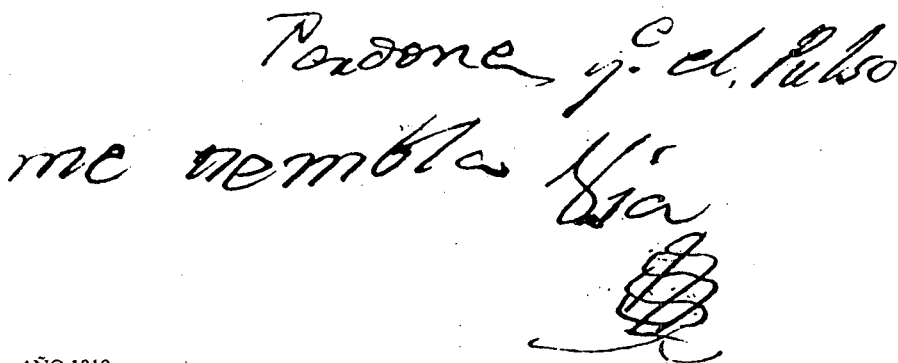 Perdone q.e el Pulso
me tiembla
AÑO